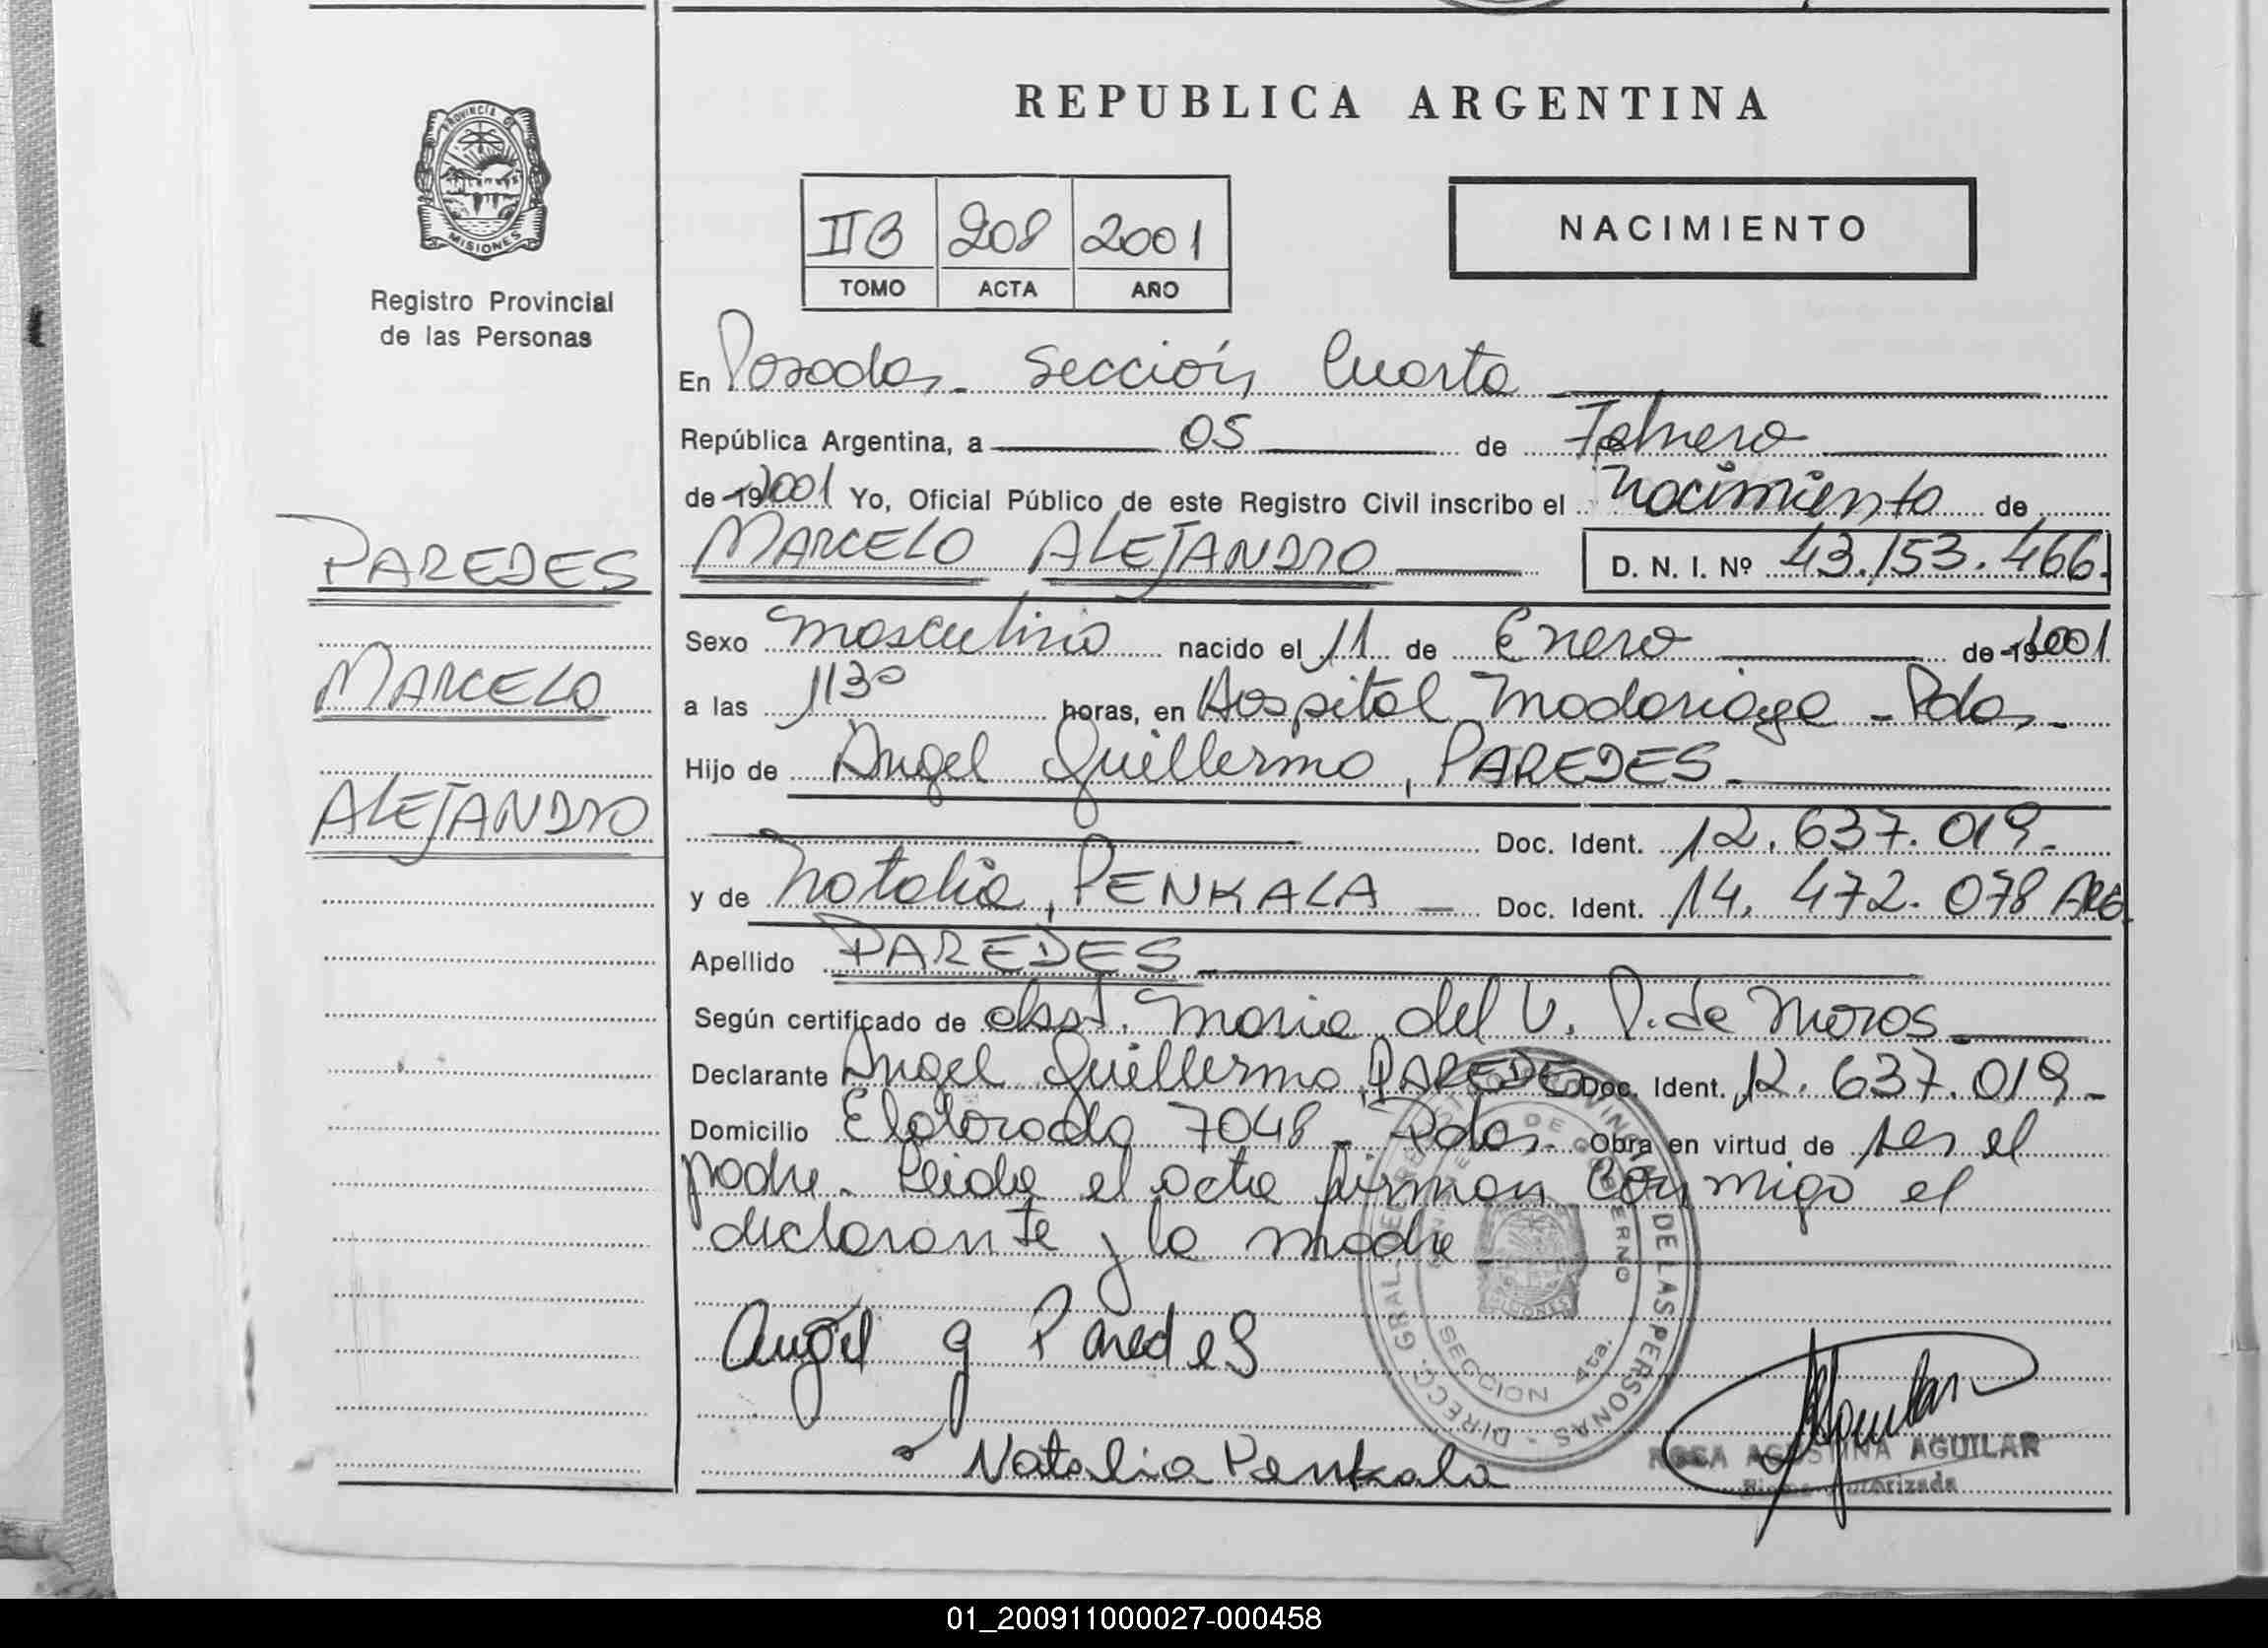 REPUBLICA ARGENTINA
PROVINCIA DE
MISIONES
Registro Provincial
de las Personas
IIB 208 2001
TOMO ACTA AÑO
NACIMIENTO
En Posadas - Sección Cuarta
República Argentina, a 05 de Febrero
de 19 2001 Yo, Oficial Público de este Registro Civil inscribo el Nacimiento de
PAREDES
MARCELO
ALEJANDRO
MARCELO ALEJANDRO D. N. I. Nº 43.153.466.
Sexo masculino nacido el 11 de Enero de 19 2001
a las 1130 horas, en Hospital Madariaga - Pdas -
Hijo de Angel Guillermo, PAREDES -
Doc. Ident. 12.637.019 -
y de Natalia, PENKALA - Doc. Ident. 14.472.078 ARG.
Apellido PAREDES -
Según certificado de obst. Maria del V. P. de Meros
Declarante Angel Guillermo, PAREDES Doc. Ident. 12.637.019 -
Domicilio Eldorado 7048 - Pdas - Obra en virtud de ser el
padre - Leida el acta firman conmigo el
declarante y la madre
Angel g Paredes
Natalia Penkala
DIRECC. GRAL. DE REGISTRO PROVINCIAL DE LAS PERSONAS -
DE GOBIERNO
MISIONES
SECCION 4ta.
ROSA AGUSTINA AGUILAR
Firma Autorizada
01_200911000027-000458